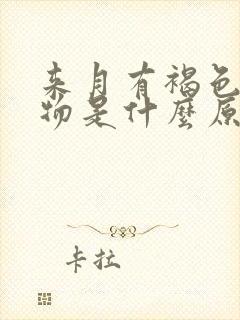 来月有褐色
物是什麼原
卡拉